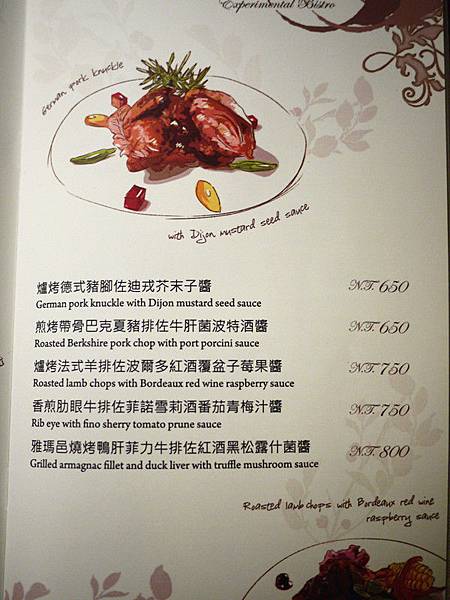 Experimental Bistro
German pork knuckle
with Dijon mustard seed sauce
爐烤德式豬腳佐迪戎芥末子醬 NT. 650
German pork knuckle with Dijon mustard seed sauce
煎烤帶骨巴克夏豬排佐牛肝菌波特酒醬 NT. 650
Roasted Berkshire pork chop with port porcini sauce
爐烤法式羊排佐波爾多紅酒覆盆子莓果醬 NT. 750
Roasted lamb chops with Bordeaux red wine raspberry sauce
香煎肋眼牛排佐菲諾雪莉酒番茄青梅汁醬 NT. 750
Rib eye with fino sherry tomato prune sauce
雅瑪邑燒烤鴨肝菲力牛排佐紅酒黑松露什菌醬 NT. 800
Grilled armagnac fillet and duck liver with truffle mushroom sauce
Roasted lamb chops with Bordeaux red wine
raspberry sauce